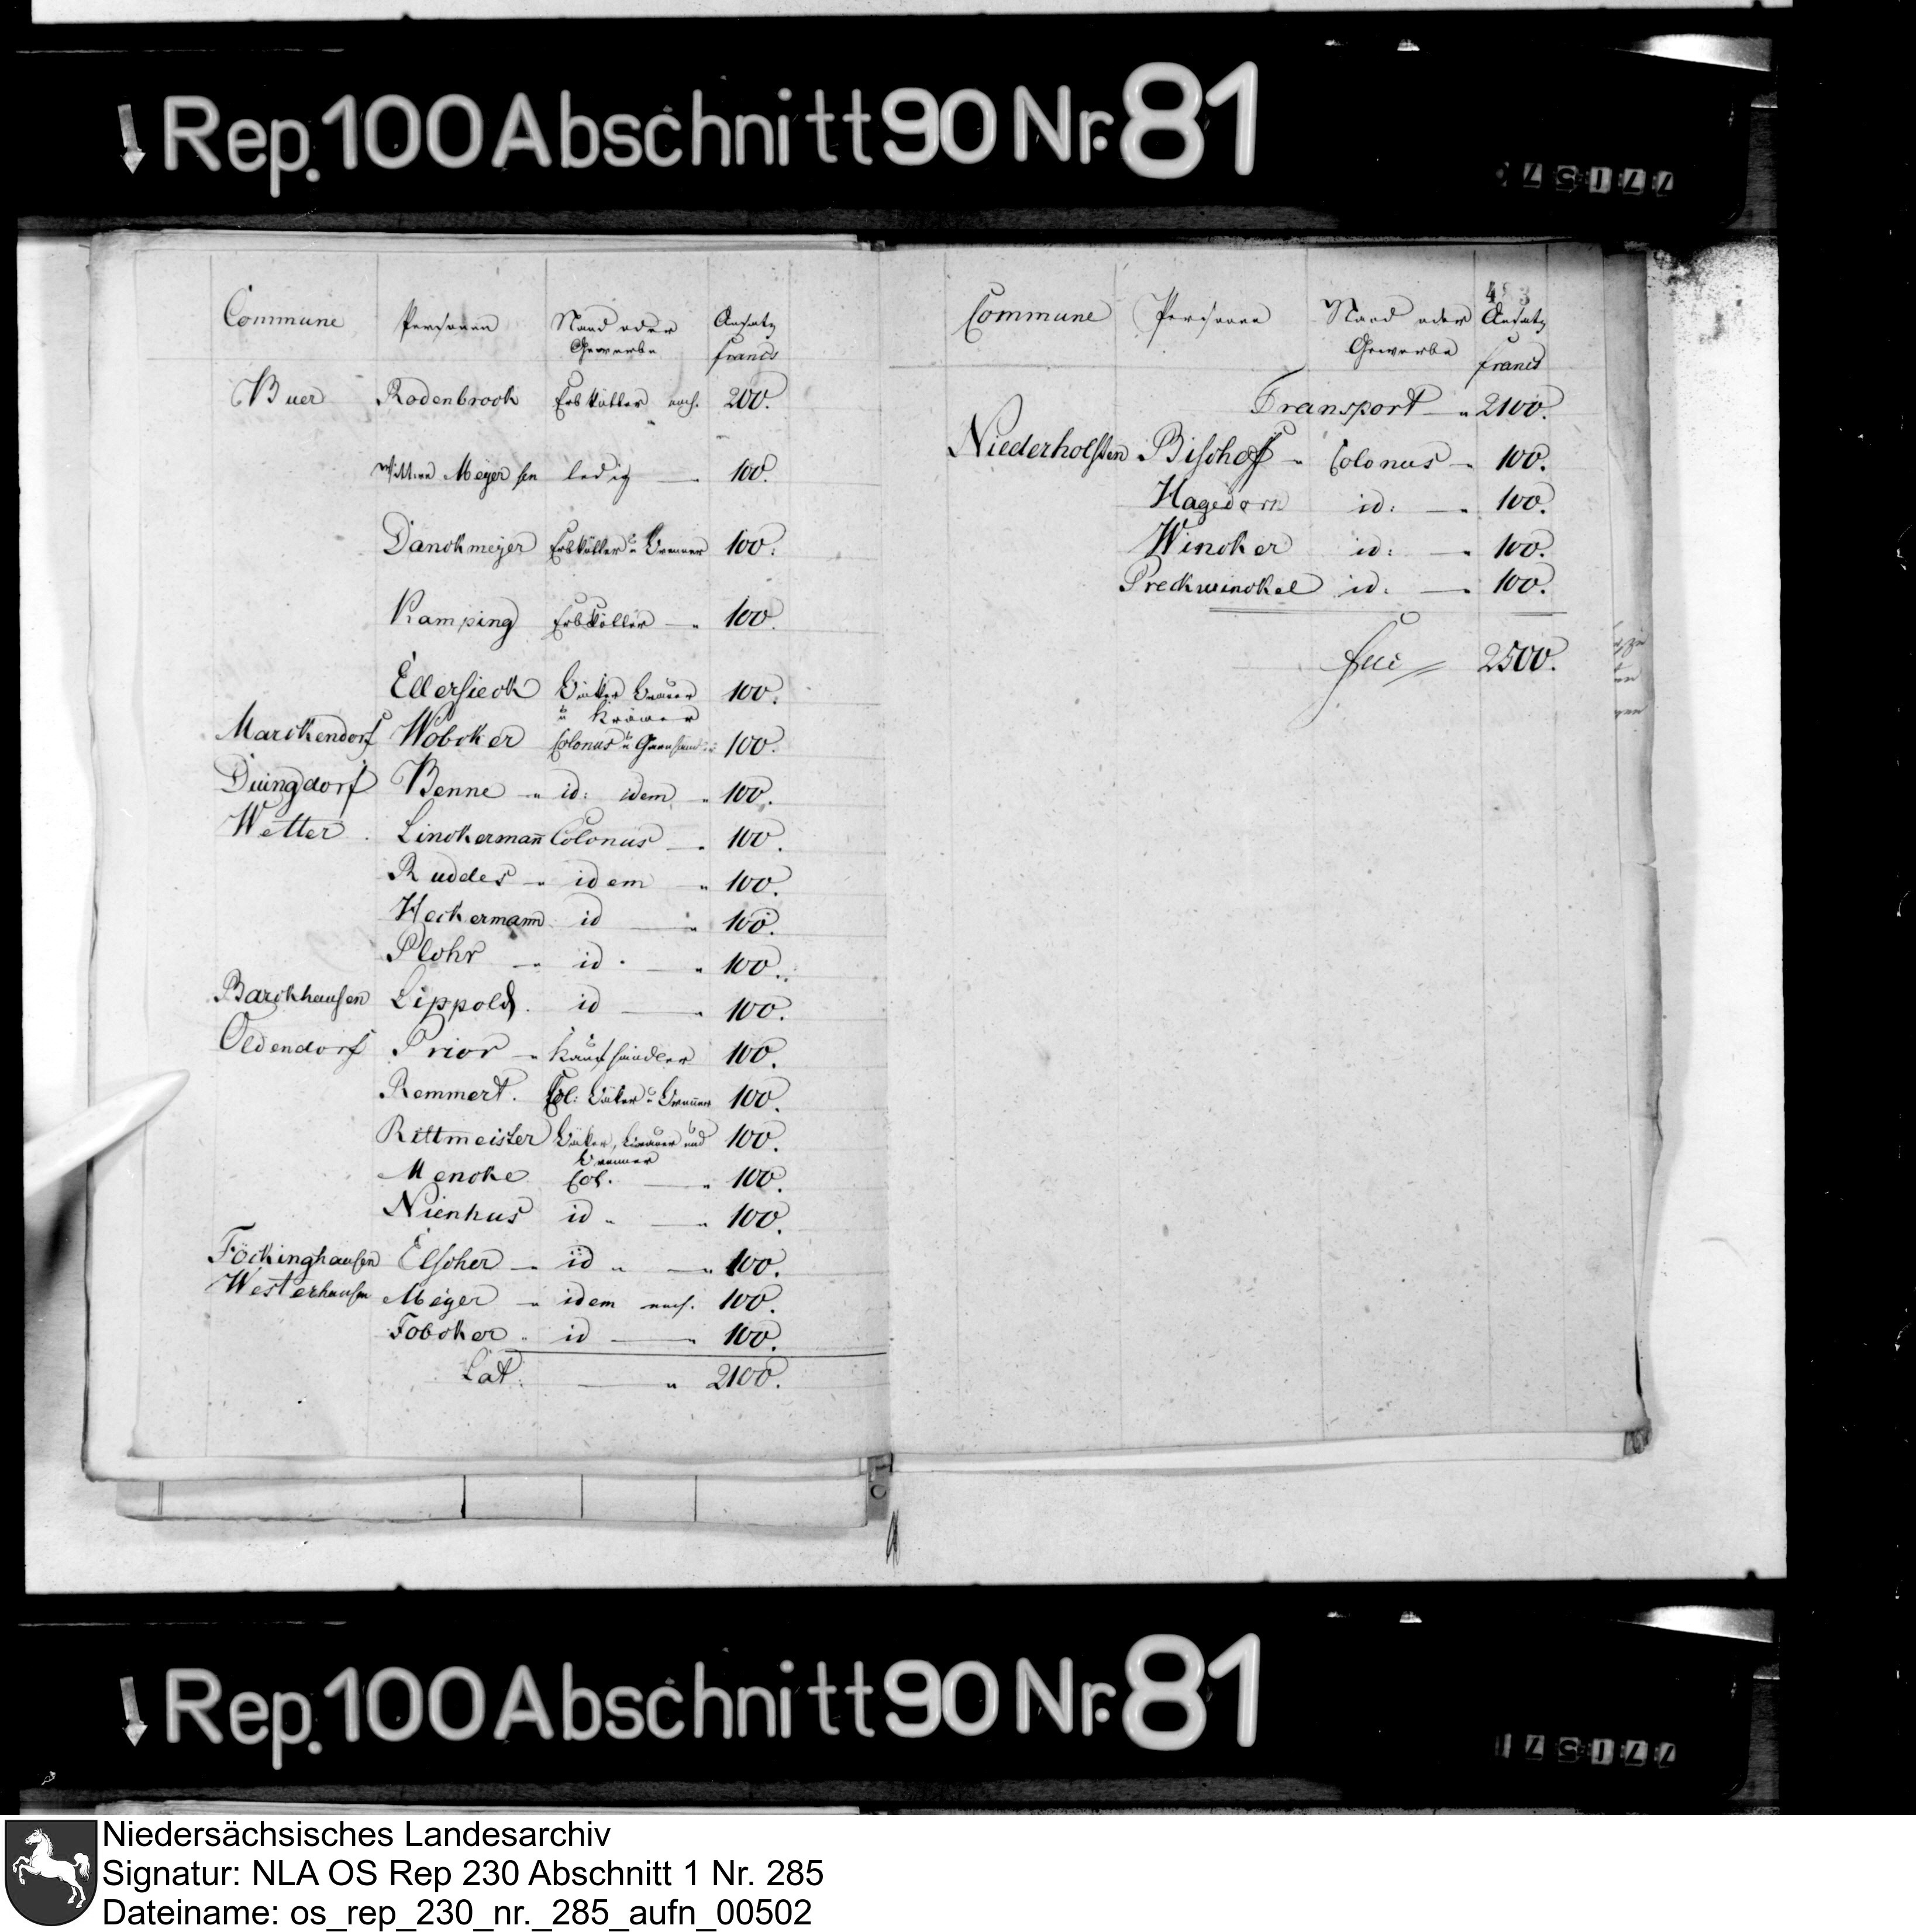 Rep. 100 Abschnitt 90 Nr. 81
Commune Personen Stand oder Gewerbe Ansatz francs
Buer Rodenbrock Erbkötter 200.
Wittwe Meyer sen ledig 100.
Danckmeyer Erbkötter u Brenner 100.
Kamping Erbkötter 100.
Ellersieck Bäker Brauer 100.
u Krämer
Marckendorf Wöbcker Colonus u 100.
Düingdorf Benne id: idem 100.
Wetter Linckermañ Colonus 100.
Ruddes idem 100.
Heckermann id 100.
Plohr id. 100.
Barckhausen Lippold id 100.
Oldendorf Prior Kaufhändler 100.
Remmert. Col: Bäker u Brenner 100.
Rittmeister Bäker, Brauer und 100.
Brenner
Mencke Col. 100.
Nienhus id 100.
Föckinghausen Elscher id 100.
Westerhausen Meyer idem 100.
Fobcker id 100.
Lat: 2100.
483
Commune Personen Stand oder Gewerbe Ansatz francs
Transport 2100.
Niederholsten Bischof Colonus 100.
Hagedorn id: 100.
Wincker id: 100.
Preckwinckel id: 100.
2500.
Rep. 100 Abschnitt 90 Nr. 81
Niedersächsisches Landesarchiv
Signatur: NLA OS Rep 230 Abschnitt 1 Nr. 285
Dateiname: os_rep_230_nr._285_aufn_00502